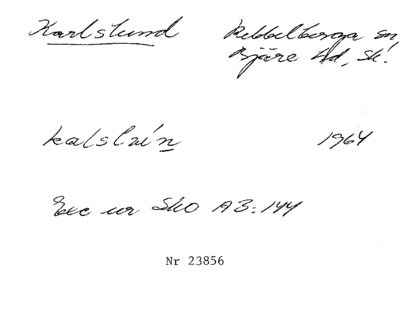 Karlslund Rebbelberga sn
Bjäre hd, Sk.
kalslún 1964
Exc ur SkO A3:144
Nr 23856